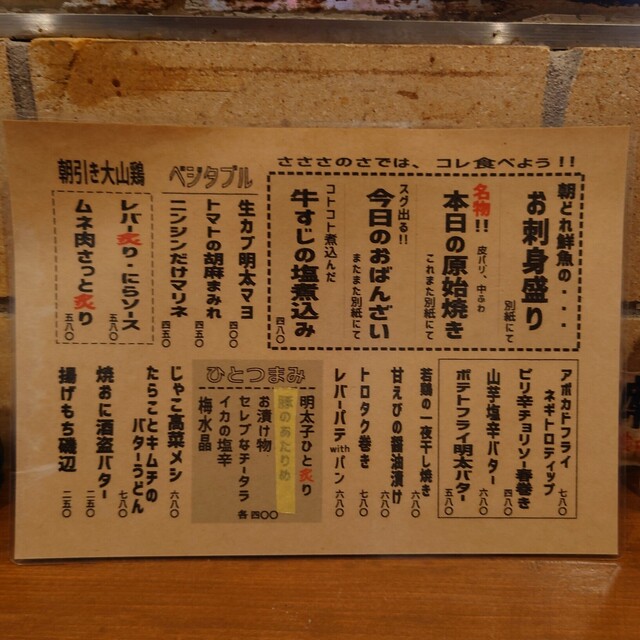 さささのさでは、コレ食べよう!!
朝どれ鮮魚の・・・
お刺身盛り
別紙にて
名物!!
皮パリ、中ふわ
本日の原始焼き
これまた別紙にて
スグ出る!!
今日のおばんざい
またまた別紙にて
コトコト煮込んだ
牛すじの塩煮込み
四八〇
ベジタブル
生カブ明太マヨ
四〇〇
トマトの胡麻まみれ
四五〇
ニンジンだけマリネ
四五〇
朝引き大山鶏
レバー炙り・にらソース
五八〇
ムネ肉さっと炙り
五八〇
アボカドフライ
ネギトロディップ
七八〇
ピリ辛チョリソー春巻き
四八〇
山芋塩辛バター
六八〇
ポテトフライ明太バター
五八〇
若鶏の一夜干し焼き
六八〇
甘えびの醤油漬け
六八〇
トロタク巻き
七八〇
レバーパテwithパン
六八〇
ひとつまみ
明太子ひと炙り
豚のあたりめ
お漬け物
セレブなチータラ
イカの塩辛
梅水晶
各 四〇〇
じゃこ高菜メシ
六八〇
たらことキムチの
バターうどん
七八〇
焼おに酒盗バター
二五〇
揚げもち磯辺
二五〇